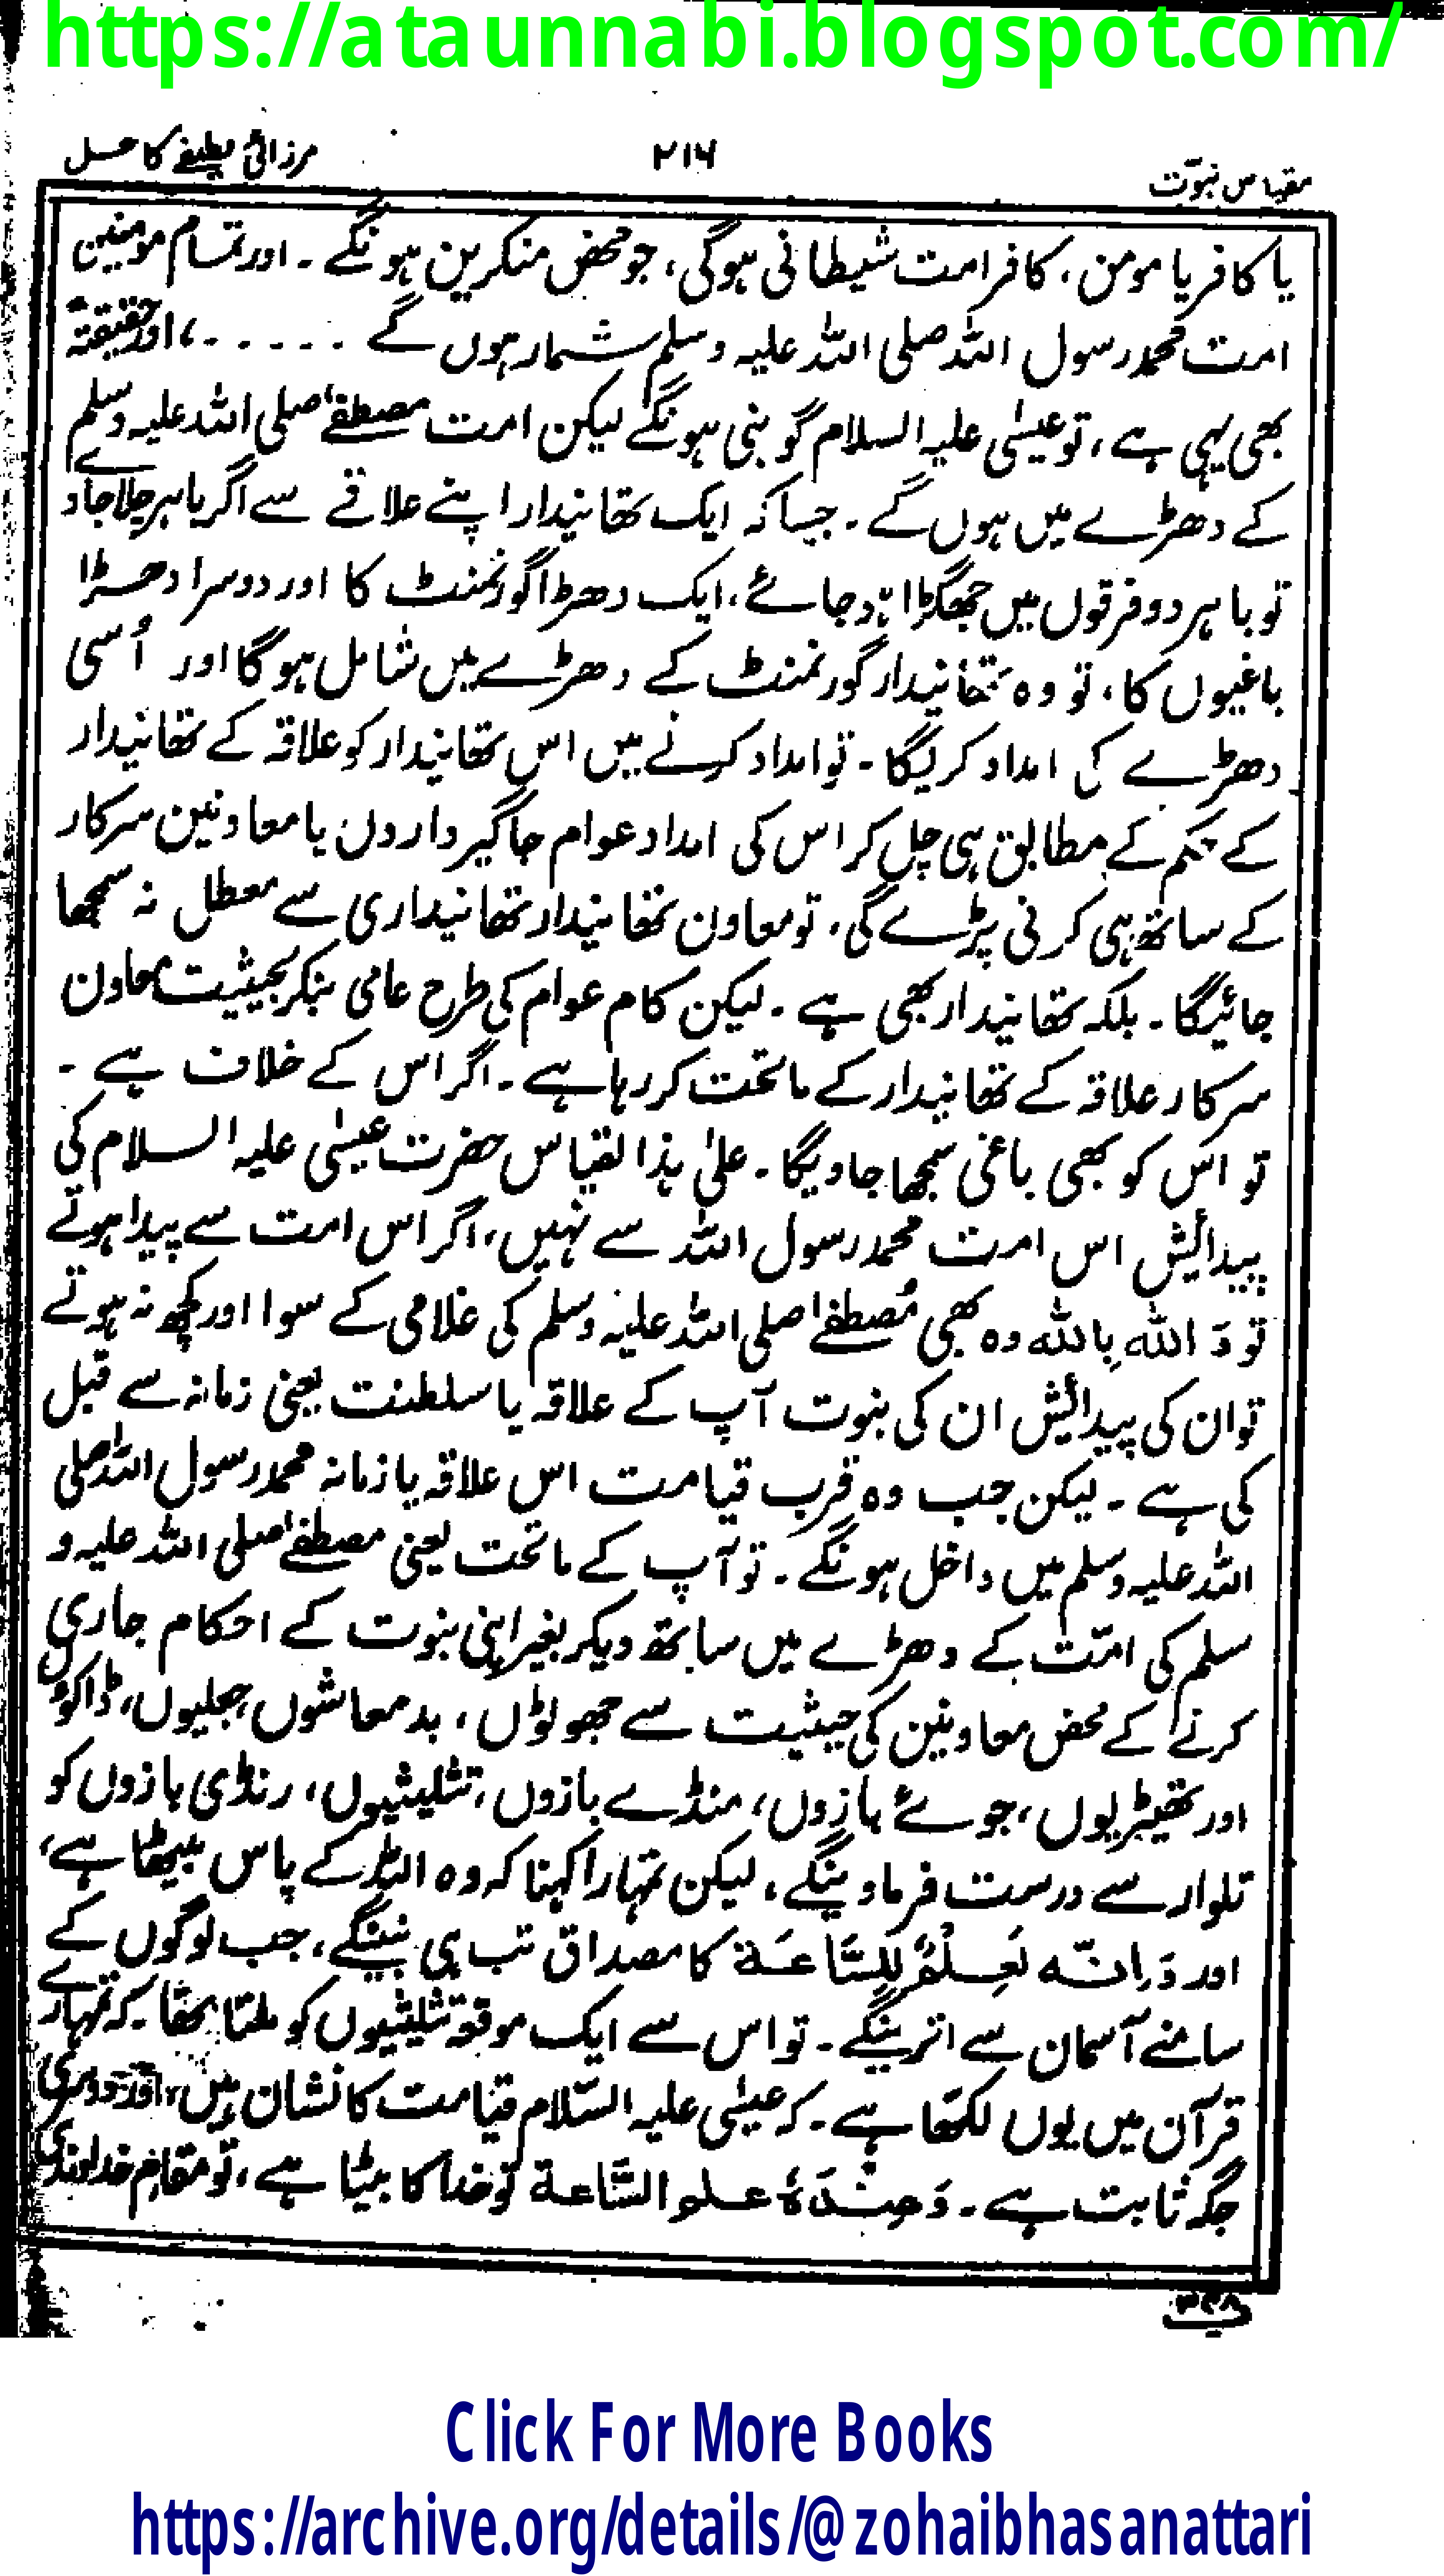 https://ataunnabi.blogspot.com/
مقیاس نبوّت
۲۱۶
مرزائی لطیفے کا حل
یا کافر یا مومن، کافر امت شیطانی ہوگی، جو محض منکرین ہونگے ۔ اور تمام مومنین
امت محمد رسول اللہ صلی اللہ علیہ وسلم شمار ہوں گے ۔۔۔۔۔، اور حقیقتہً
بھی یہی ہے، تو عیسٰی علیہ السلام گو نبی ہونگے لیکن امت مصطفےٰ صلی اللہ علیہ وسلم
کے دھڑے میں ہوں گے ۔ جیسا کہ ایک تھانیدار اپنے علاقے سے اگر باہر چلا جاوے
تو باہر دو فرقوں میں جھگڑا ہو جائے، ایک دھڑا گورنمنٹ کا اور دوسرا دھڑا
باغیوں کا، تو وہ تھانیدار گورنمنٹ کے دھڑے میں شامل ہوگا اور اُسی
دھڑے کی امداد کریگا ۔ تو امداد کرنے میں اس تھانیدار کو علاقہ کے تھانیدار
کے حکم کے مطابق ہی چل کر اس کی امداد عوام جاگیرداروں یا معاونین سرکار
کے ساتھ ہی کرنی پڑے گی، تو معاون تھانیدار تھانیداری سے معطل نہ سمجھا
جائیگا ۔ بلکہ تھانیدار بھی ہے ۔ لیکن کام عوام کی طرح عامی بنکر بحیثیت معاون
سرکار علاقہ کے تھانیدار کے ماتحت کر رہا ہے ۔ اگر اس کے خلاف ہے ۔
تو اس کو بھی باغی سمجھا جاویگا ۔ علیٰ ہذا القیاس حضرت عیسٰی علیہ السلام کی
پیدائش اس امت محمد رسول اللہ سے نہیں، اگر اس امت سے پیدا ہوتے
تو وَ اللہ بِاللہ وہ بھی مُصطفےٰ صلی اللہ علیہ وسلم کی غلامی کے سوا اور کچھ نہ ہوتے
توان کی پیدائش ان کی نبوت آپ کے علاقہ یا سلطنت یعنی زمانہ سے قبل
کی ہے ۔ لیکن جب وہ قرب قیامت اس علاقہ یا زمانہ محمد رسول اللہ صلی
اللہ علیہ وسلم میں داخل ہونگے ۔ تو آپ کے ماتحت یعنی مصطفےٰ صلی اللہ علیہ و
سلم کی امّت کے دھڑے میں ساتھ دیکر بغیر اپنی نبوت کے احکام جاری
کرنے کے محض معاونین کی حیثیت سے جھوٹوں، بدمعاشوں، جعلیوں، ڈاکوؤں
اور تھیٹریوں، جوئے بازوں، منڈے بازوں، تثلیثیوں، رنڈی بازوں کو
تلوار سے درست فرماوینگے، لیکن تمہارا کہنا کہ وہ اللہ کے پاس بیٹھا ہے،
اور وَاِنَّہ لَعِلْمٌ لِلسَّاعَة کا مصداق تب ہی بنینگے، جب لوگوں کے
سامنے آسمان سے اترینگے ۔ تو اس سے ایک موقعہ تثلیثیوں کو ملتا تھا ۔ کہ تمہارے
قرآن میں یوں لکھا ہے ۔ کہ عیسٰی علیہ السّلام قیامت کا نشان ہیں، اور دوسری
جگہ ثابت ہے ۔ وَعِنْدَہٗ علم السَّاعة تو خدا کا بیٹا ہے، تو مقامِ خداوندی
Click For More Books
https://archive.org/details/@zohaibhasanattari